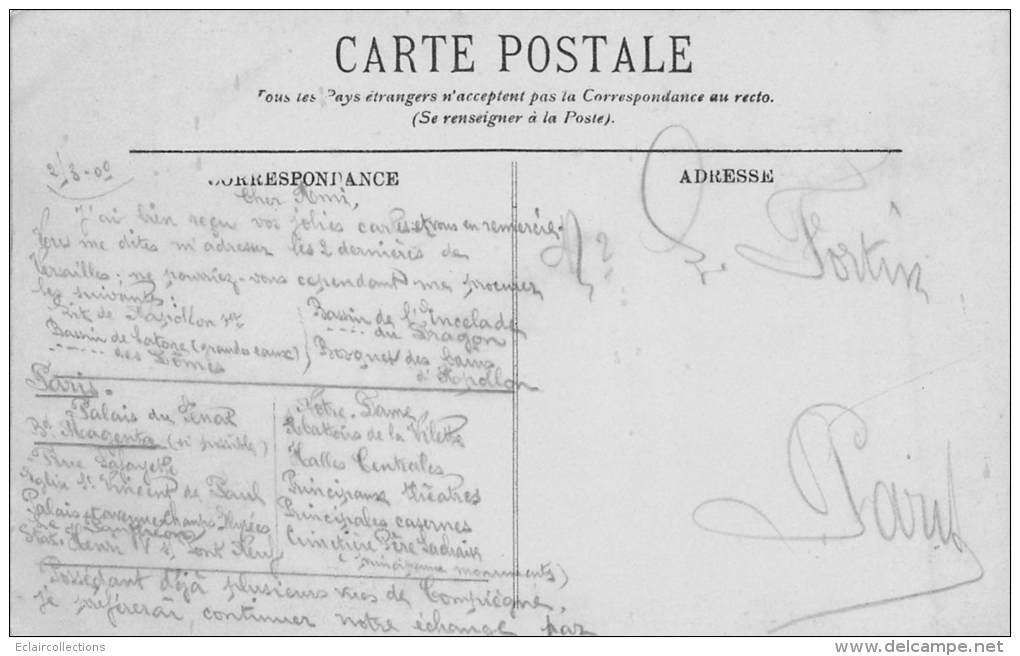 CARTE POSTALE
Tous les Pays étrangers n'acceptent pas la Correspondance au recto.
(Se renseigner à la Poste).
2/3-09
CORRESPONDANCE
Cher Ami,
J'ai bien reçu vos jolies cartes et vous en remercie.
Vous me dites m'adresser les 2 dernières de
Versailles; ne pourriez-vous cependant me procurer
les suivantes:
de Napoléon 1er
Bassin de Latone (grandes eaux)
----- des Dômes
Bassin de l'Encelade
----- du Dragon
Bosquet des bains
d'Apollon
Paris.
Palais du Sénat
Bd Magenta (si possible)
Rue Lafayette
Eglise St Vincent de Paul
Palais et avenue Champs Elysées
Panthéon
Stat. Henri IV s/ Pont Neuf
Notre-Dame
Abattoirs de la Vilette
Halles Centrales
Principaux théâtres
Principales casernes
Cimetière Père Lachaise
(principaux monuments)
Possédant déjà plusieurs vues de Compiègne,
je préférerai continuer notre échange par
ADRESSE
Fortin
Paris
Eclaircollections
delcampe.net